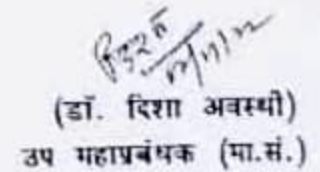 (डॉ. दिशा अवस्थी)
उप महाप्रबंधक (मा.सं.)